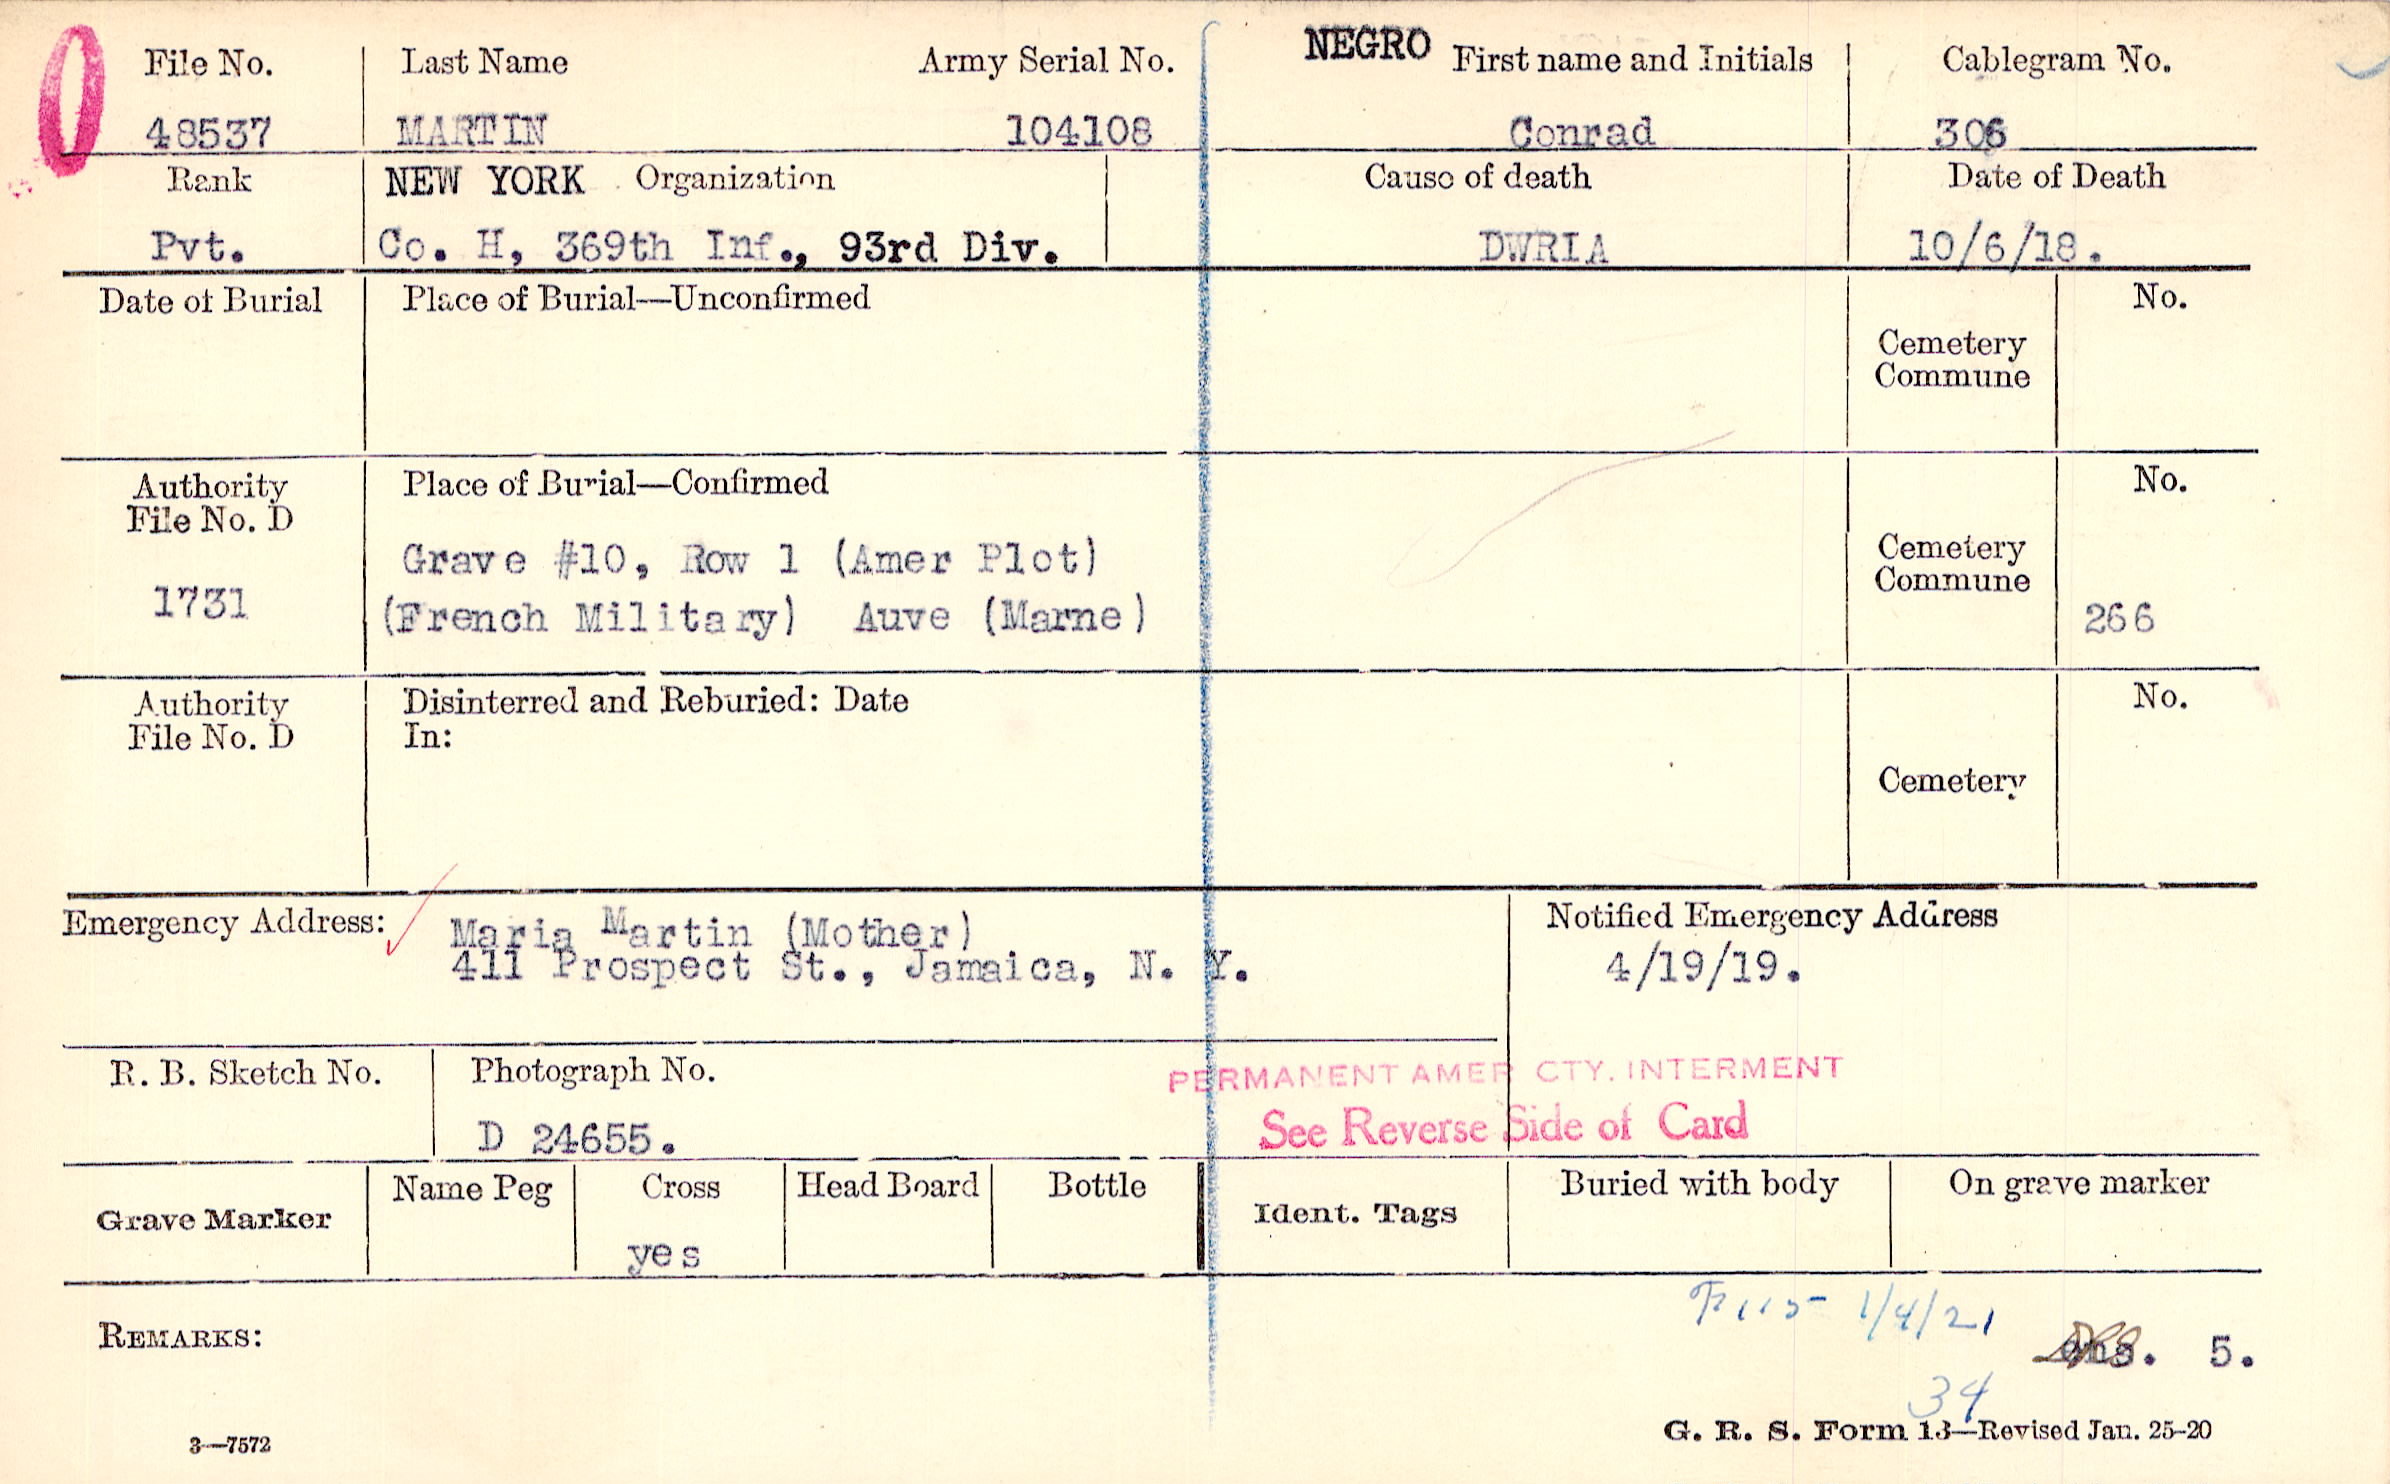 File No. Last Name Army Serial No. NEGRO First name and Initials Cablegram No.
48537 MARTIN 104108 Conrad 306
Rank NEW YORK Organization Cause of death Date of Death
Pvt. Co. H, 369th Inf., 93rd Div. DWRIA 10/6/18.
Date of Burial Place of Burial—Unconfirmed No.
Cemetery
Commune
Authority Place of Burial—Confirmed No.
File No. D
Grave #10, Row 1 (Amer Plot) Cemetery
Commune
1731 (French Military) Auve (Marne) 266
Authority Disinterred and Reburied: Date No.
File No. D In:
Cemetery
Emergency Address: Maria Martin (Mother) Notified Emergency Address
411 Prospect St., Jamaica, N. Y. 4/19/19.
R. B. Sketch No. Photograph No. PERMANENT AMER CTY. INTERMENT
D 24655. See Reverse Side of Card
Grave Marker Name Peg Cross Head Board Bottle Ident. Tags Buried with body On grave marker
yes
1/4/21
REMARKS: 5.
34
3—7572 G. R. S. Form 13—Revised Jan. 25-20